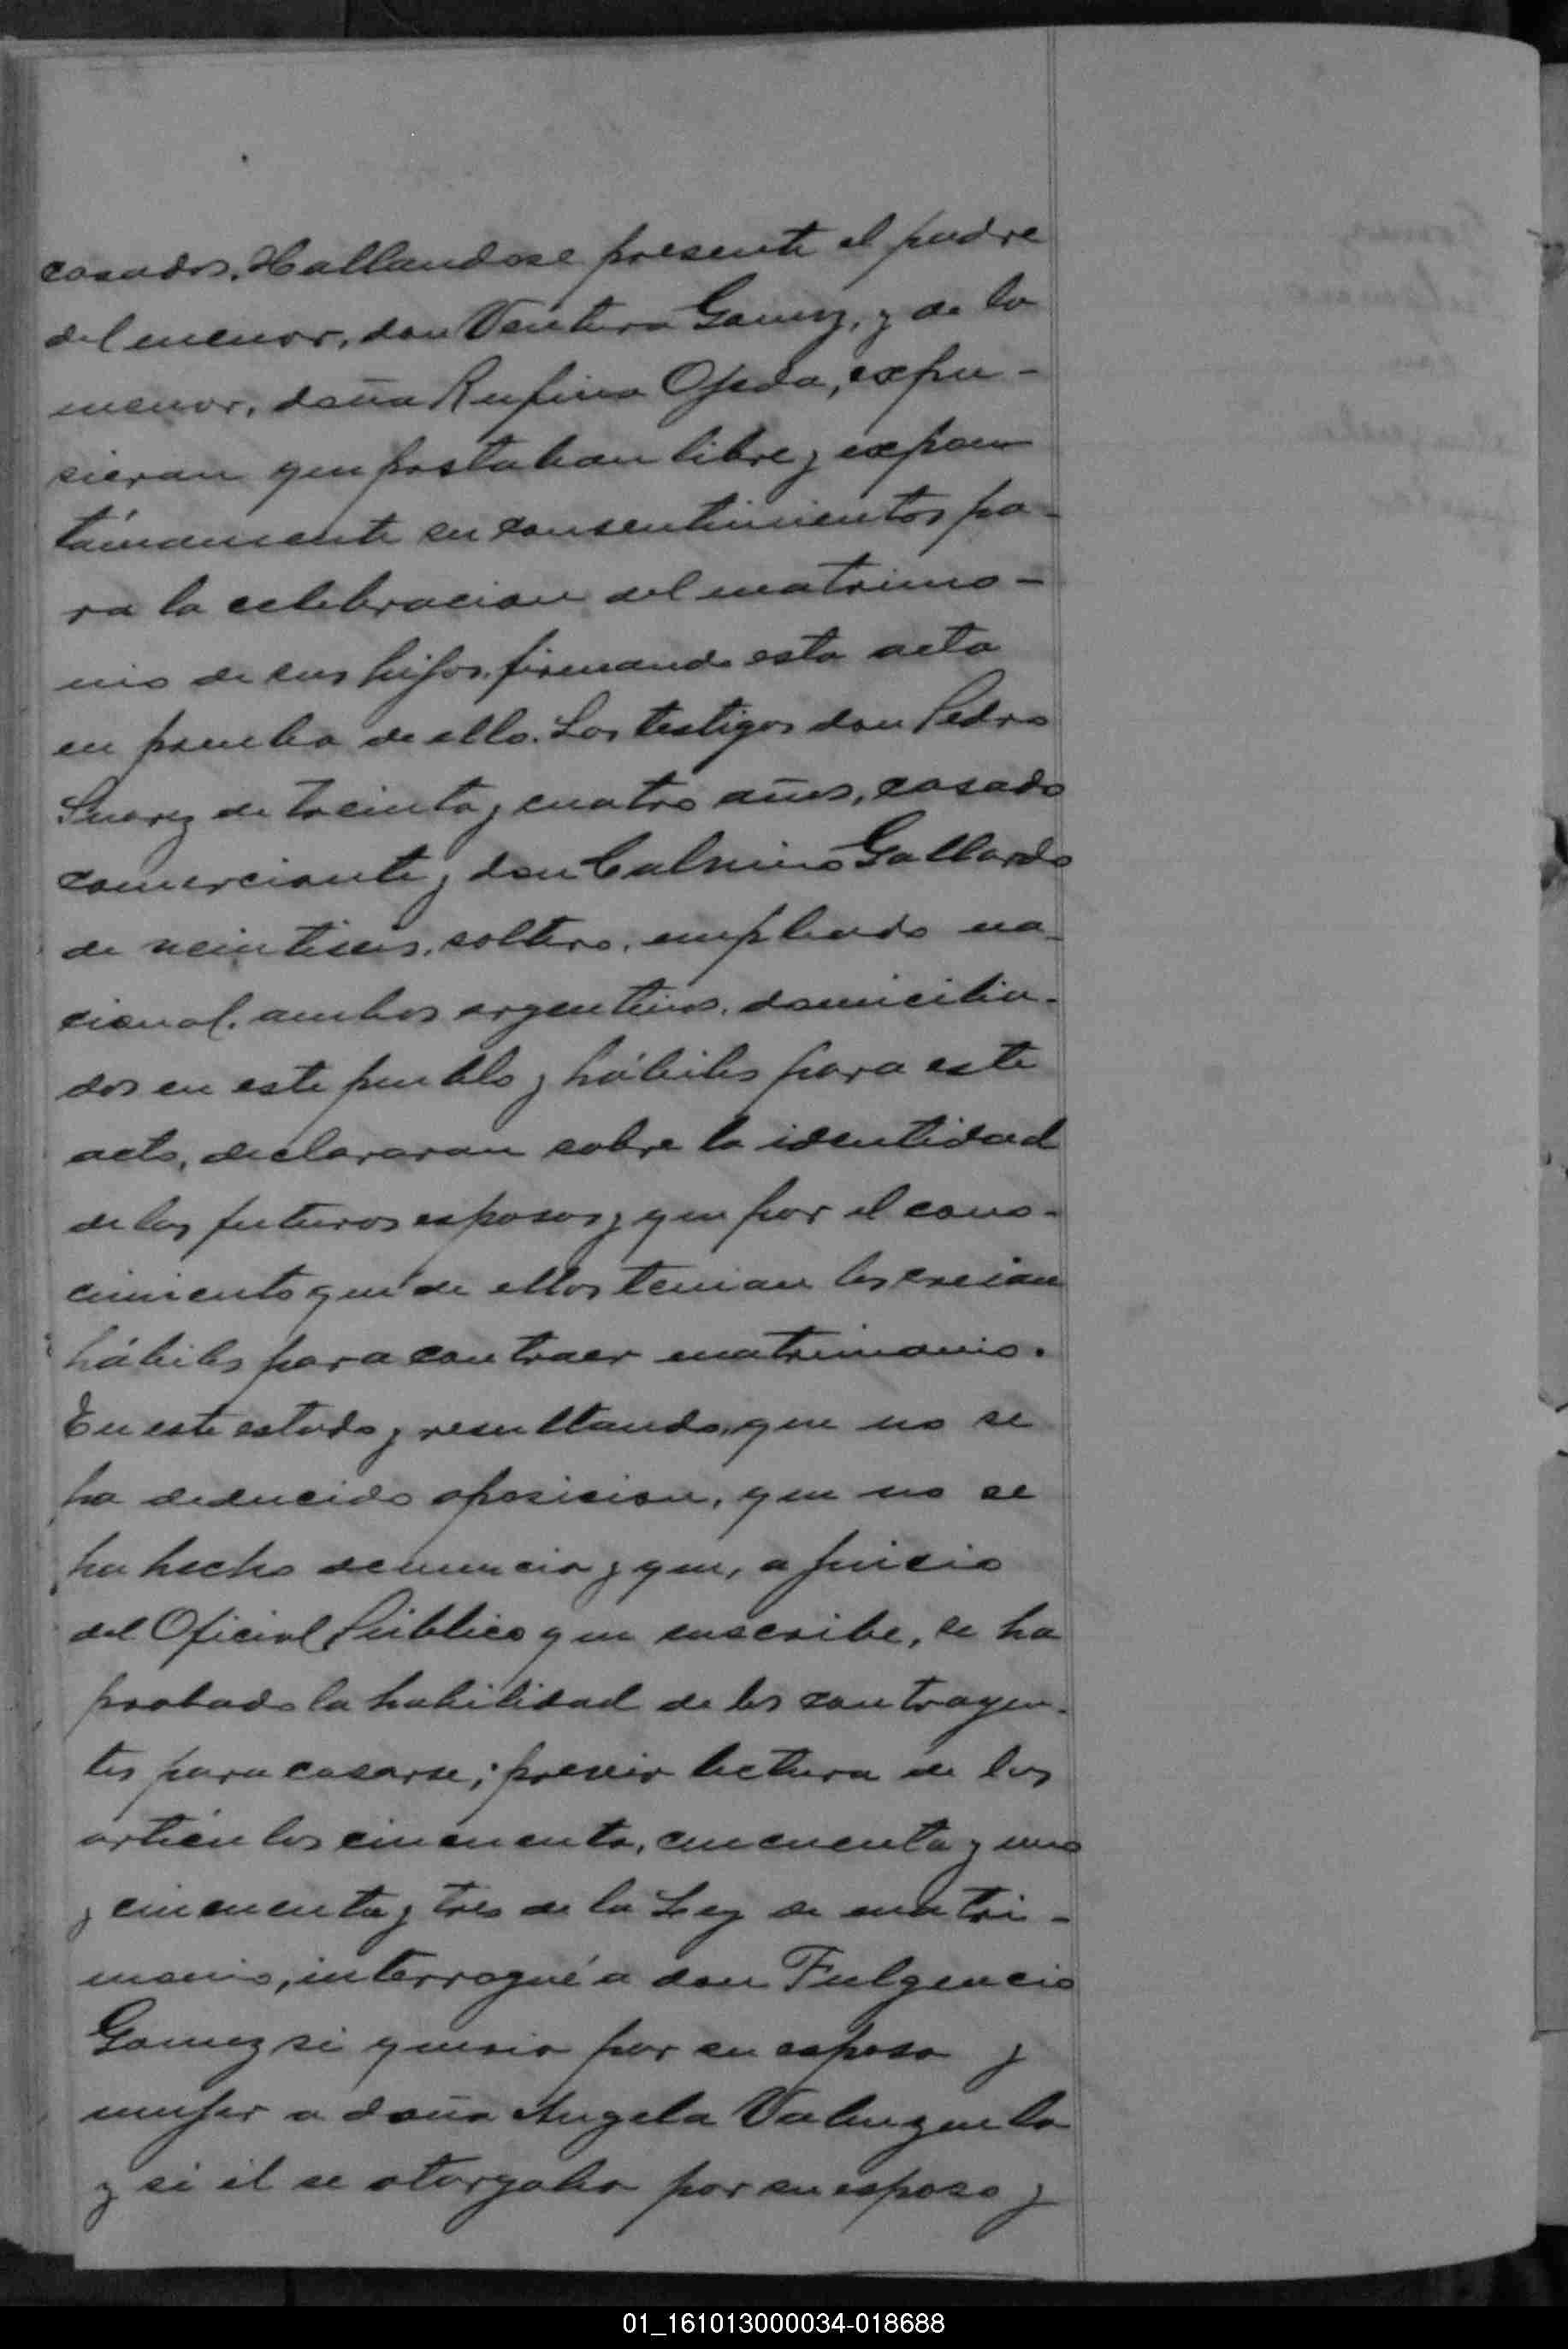 casados. Hallandose presente el padre
del menor, don Ventura Gamez, y de la
menor, doña Rufina Ojeda, expu-
sieran que prestaban libre y expon
táneamente su consentimientos pa-
ra la celebracion del matrimo-
nio de sus hijos, firmando esta acta
en prueba de ello. Los testigos don Pedro
Suarez de treinta y cuatro años, casado
comerciante y don Gallardo
de veintiseis, soltero, empleado na-
cional, ambos argentinos, domicilia-
dos en este pueblo y hábiles para este
acto, declararan sobre la identidad
de los futuros esposos y que por el cono-
cimiento que de ellos tenian los creian
hábiles para contraer matrimonio.
En este estado y resultando, que no se
ha deducido oposicion, que no se
ha hecho denuncia y que, a juicio
del Oficial Público que suscribe, se ha
probado la habilidad de los contrayen-
tes para casarse; previa lectura de los
artículos cincuenta, cincuenta y uno
y cincuenta y tres de la Ley de matri-
monio, interrogué a don Fulgencio
Gamez si queria por su esposa y
mujer a doña Angela Valenzuela
y si él se otorgaba por su esposo y
01_161013000034-018688